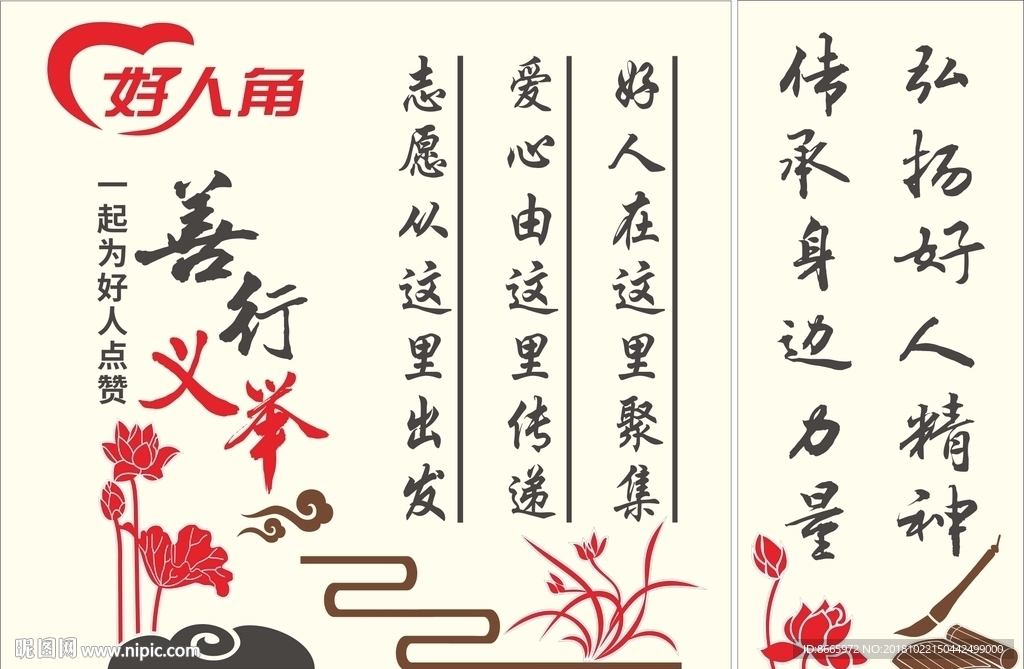 好人角
善行
义举
一起为好人点赞
好人在这里聚集
爱心由这里传递
志愿从这里出发
弘扬好人精神
传承身边力量
昵图网 www.nipic.com
ID:8665972 NO:20181022150442499000